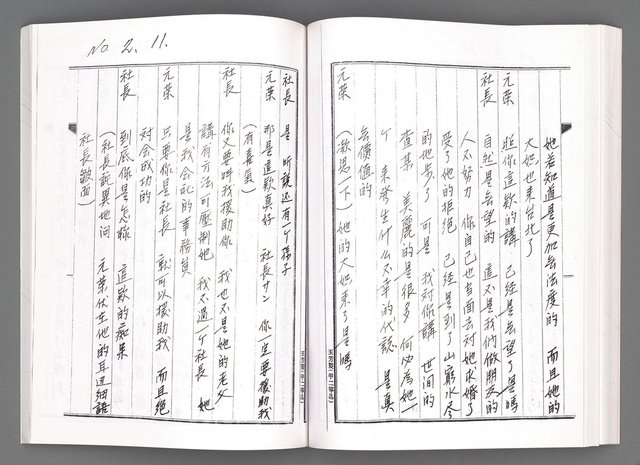 No. 2. 11.
她若知道是更加無法度的 而且她的
大姐也来台北了
元葉 照你這款的講 已經是無望了是嗎
社長 自然是無望的 這不是我們做朋友的
人不努力 你自己也有面去对她求婚了
受了她的拒絕 已經是到了山窮水尽
的地步了 可是 我对你講 世间的
查某 美麗的是很多 何必為她一
个 来發生什么不幸的代誌 是真
無價值的
元葉 (歇思一下) 她的大姐来了是嗎
社長 是 听說还有一个孩子
元葉 那是這款真好 社長サン 你一定要援助我
(有喜氣)
社長 你又要叫我援助你 我也不是她的老父
講有方法可壓制她 我不過一个社長 她
是我会社的事務員
元葉 只要你是社長 就可以援助我 而且絕
对会成功的
社長 到底你是怎樣 這款的痴呆
(社長說異地问 元葉伏在他的耳边細語
社長皺面)